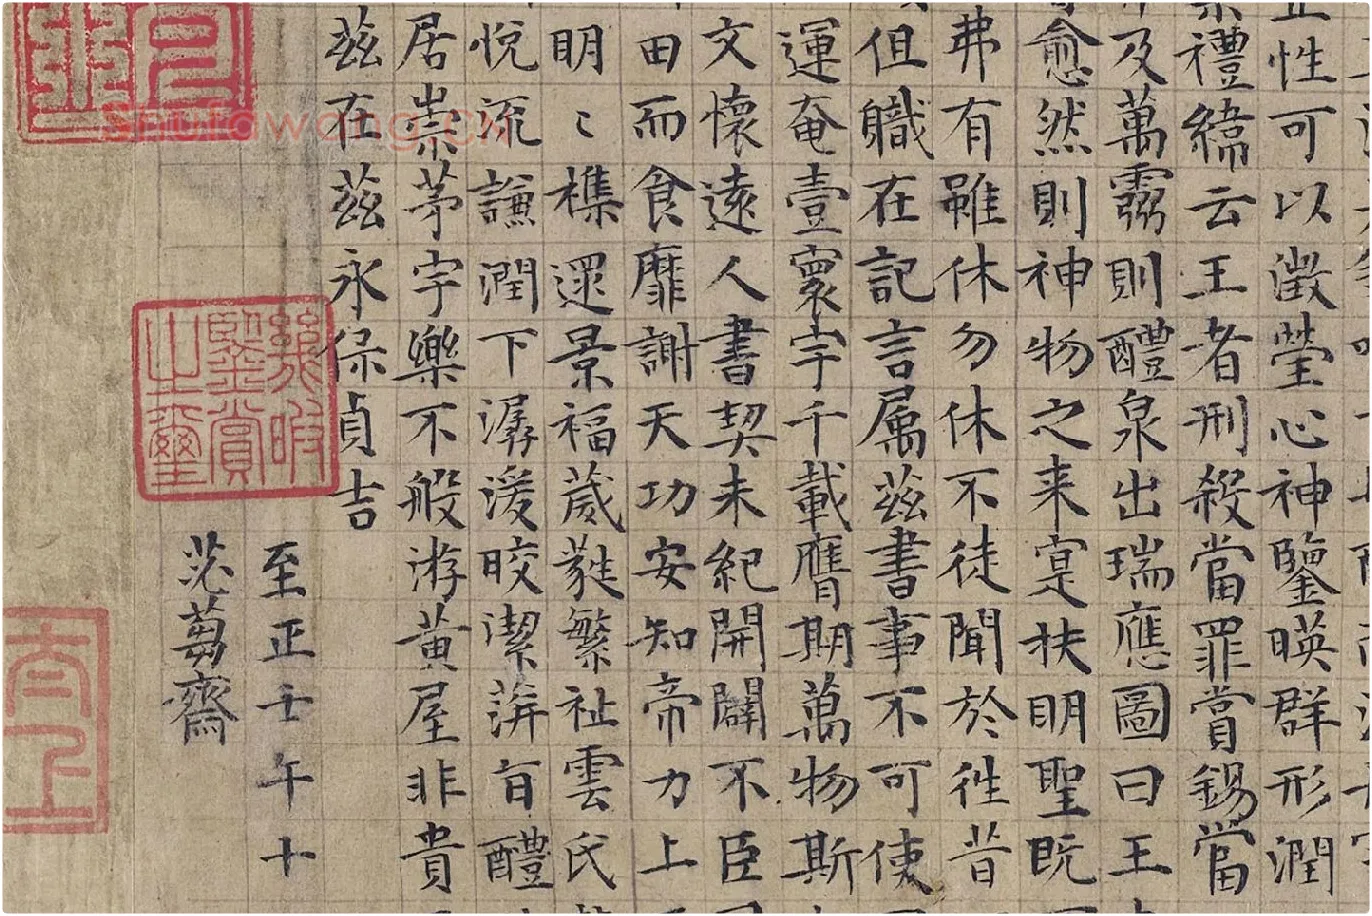 正性可以澂瑩心神鑒暎群形潤
禮緯云王者刑殺當罪賞錫當
及萬靈則醴泉出瑞應圖曰王
愈然則神物之来寔扶明聖既
弗有雖休勿休不徒聞於徃昔
但職在記言属茲書事不可使
運奄壹寰宇千載膺期萬物斯
文懷遠人書契未紀開闢不臣
田而食靡謝天功安知帝力上
明〻襍遝景福葳蕤繁祉雲氏
悦流謙潤下潺湲晈潔蓱旨醴
居崇茅宇樂不般游黃屋非貴
茲在茲永保貞吉
至正壬午十
苾蒭齋
幾暇
鑒賞
之璽